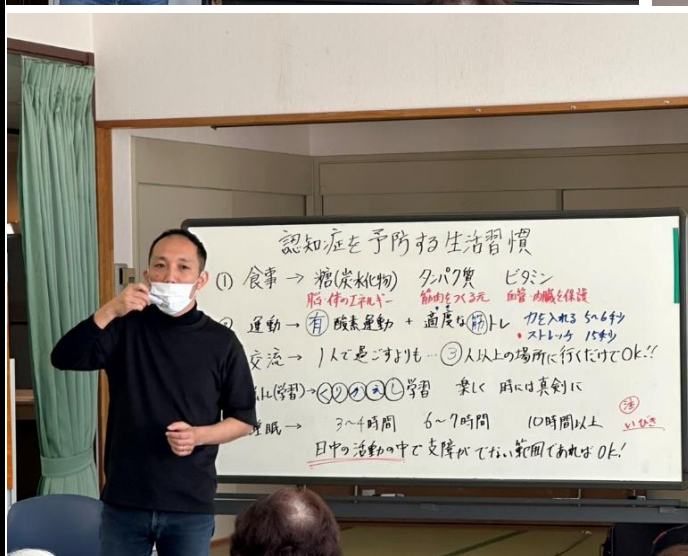 認知症を予防する生活習慣
① 食事 → 糖(炭水化物) タンパク質 ビタミン
脳・体のエネルギー 筋肉をつくる元 血管・内臓を保護
運動 → 有酸素運動 + 適度な筋トレ 力を入れる 5〜6秒
・ストレッチ 15秒
交流 → 1人で過ごすよりも…③人以上の場所に行くだけでOK!!
トレ(学習)→くりかえし学習 楽しく 時には真剣に
睡眠 → 3〜4時間 6〜7時間 10時間以上 注 いびき
日中の活動の中で支障がでない範囲であればOK!